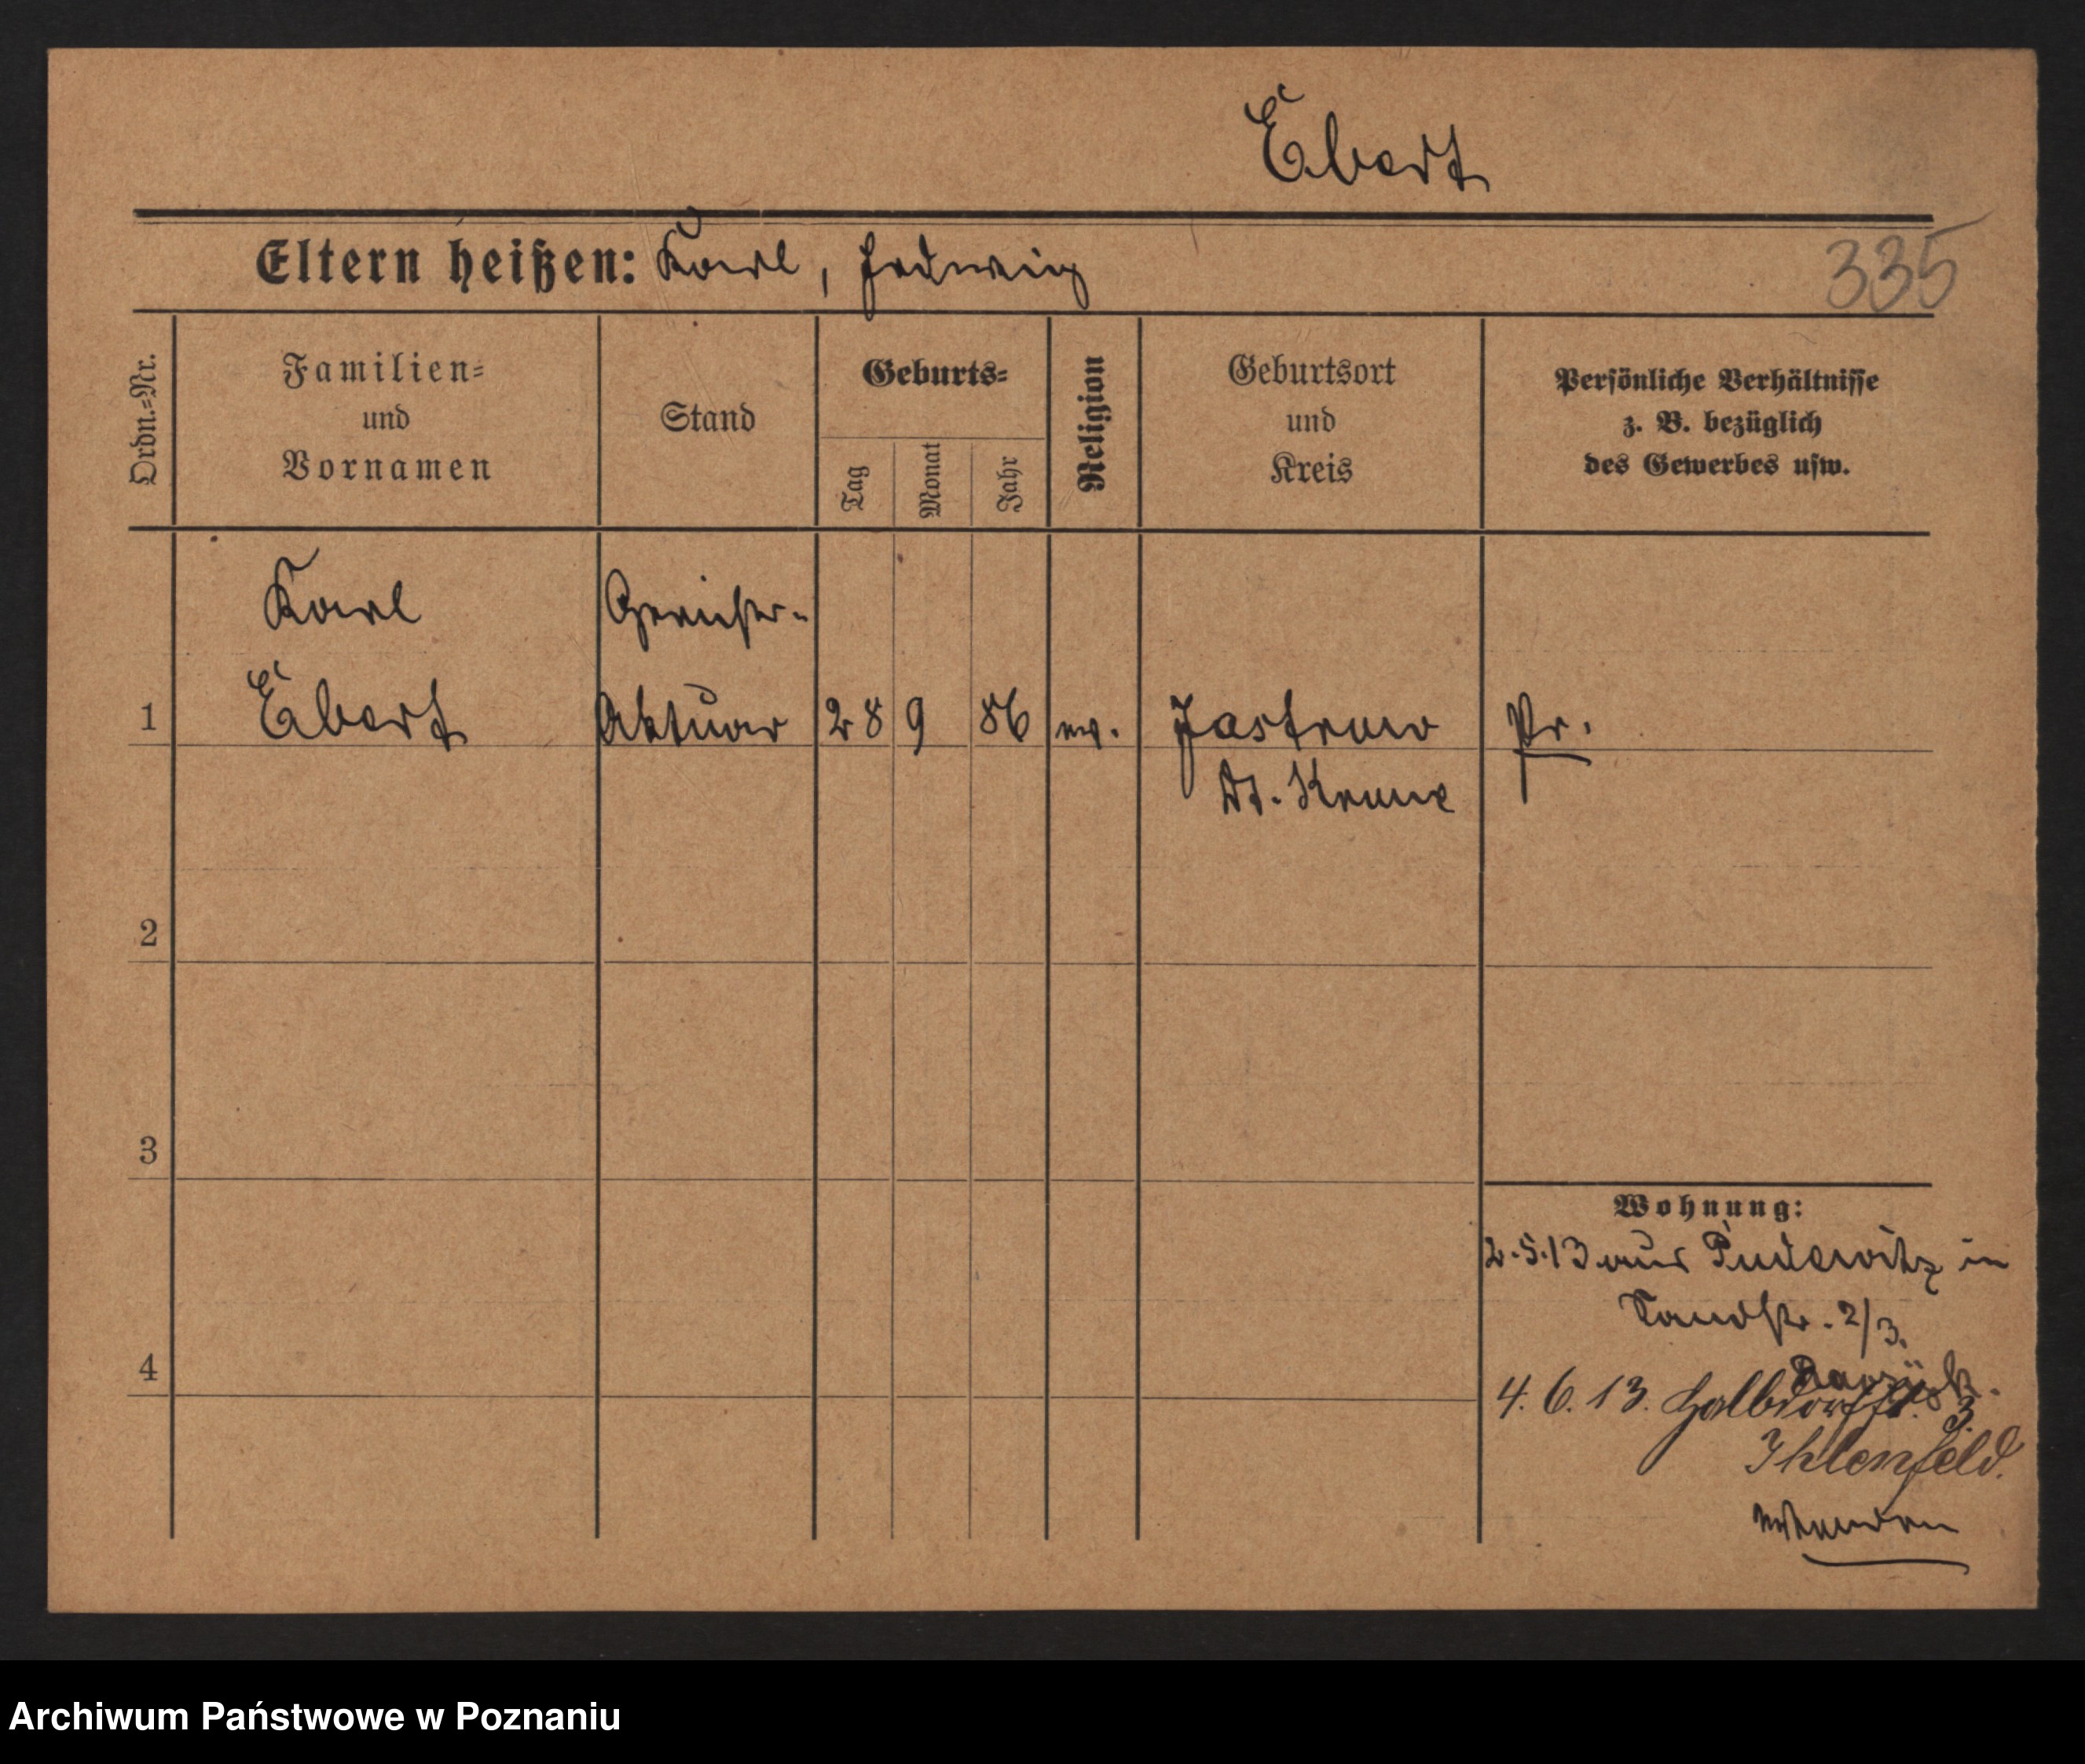 Ebert
Eltern heißen: Karl, Hedwig
335
Ordn.=Nr.
Familien=
und
Vornamen
Stand
Geburts=
Tag
Monat
Jahr
Religion
Geburtsort
und
Kreis
Persönliche Verhältnisse
z. B. bezüglich
des Gewerbes usw.
Karl
Gerichts-
1 Ebert Aktuar 28 9 86 ev. Jastrow Pr.
Dt. Krone
2
3
Wohnung:
2.5.13 aus Pudewitz in
Sandstr. 2/3.
4
4. 6. 13. Halbdorfstr. 3.
Ihlenfeld.
Archiwum Państwowe w Poznaniu